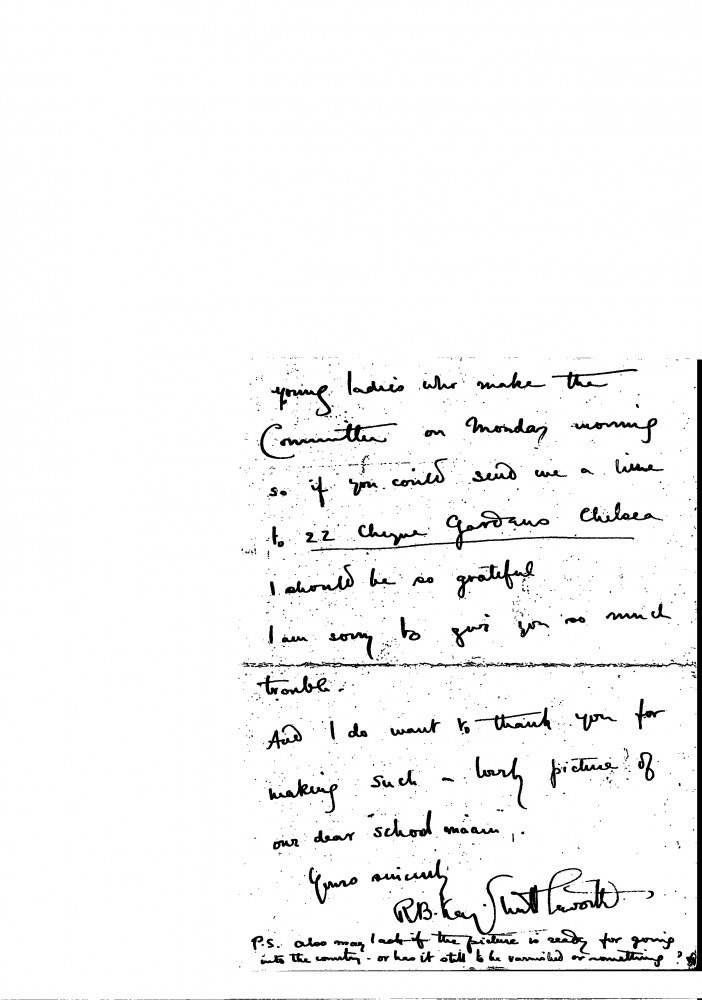 young ladies who make the
Committee on Monday morning
so if you could send me a line
to 22 Cheyne Gardens Chelsea
I should be so grateful
I am sorry to give you so much
trouble.
And I do want to thank you for
making such a lovely picture of
our dear "school maam".
Yours sincerely
R.B. Kay-Shuttleworth
P.S. also may I ask if the picture is ready for going
into the country - or has it still to be varnished or something?